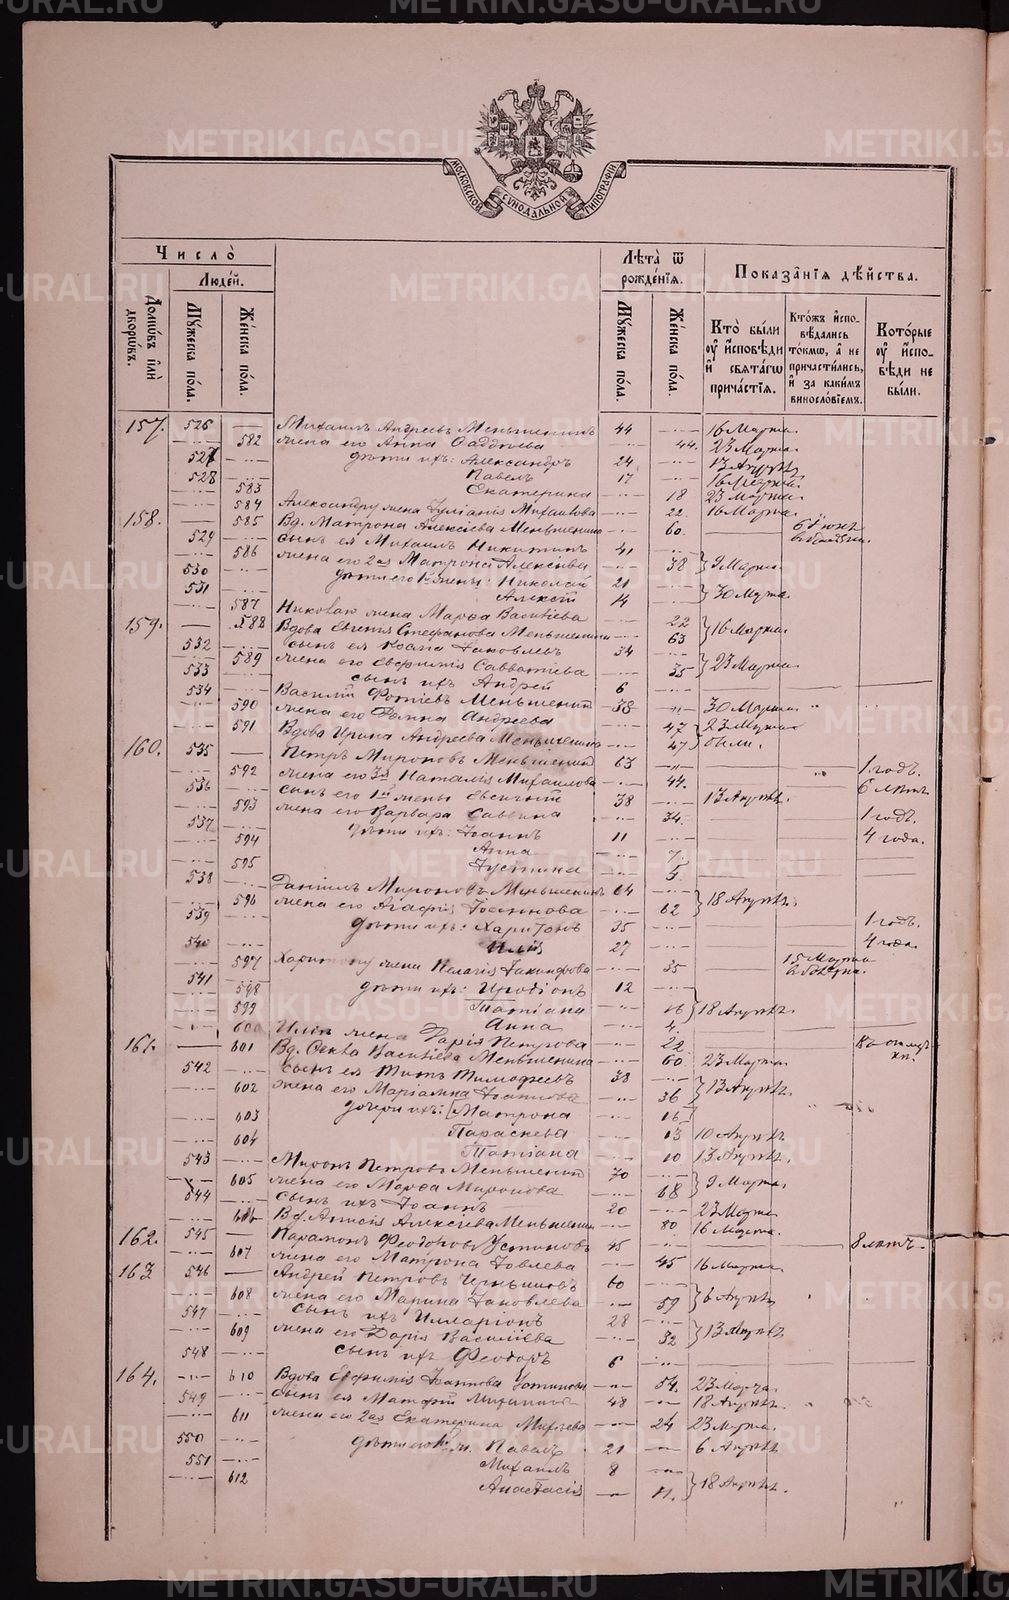 МОСКОВСКОЙ СУНОДАЛЬНОЙ ТИПОГРАФІИ
Число̀
Людей.
Домѡвъ и҆лѝ дворѡвъ.
Мꙋжеска пола.
Женска пола.
Лѣта̀ ѿ рожде́нїѧ.
Мꙋжеска пола.
Женска пола.
Показа̑нїѧ дѣ́йства.
Кто̀ бы́ли оу҆ и҆сповѣди и҆ свѧта́гѡ причастїѧ.
Кто́жъ и҆сповѣдались то́кмѡ, а҆ не причасти́лись, и҆ за каки́мъ винословїемъ.
Кото́рые оу҆ и҆сповѣди не бы́ли.
157. 526 — Михаилъ Андреевъ Меньшенинъ 44 16 Марта
582 жена его Анна Фаддѣева 44. 23 Марта
527 дѣти ихъ: Александръ 24 13 Апрѣл.
528 Павелъ 17 16 Марта
583 Екатерина 18 23 Марта
584 Александру жена Іуліанія Михаилова 22 16 Марта
158. 585 Вд. Матрона Алексіева Меньшенина 60. 6 Іюн.
529 сынъ ея Михаилъ Никитинъ 41
586 жена его 2ая Матрона Алексіева 38 9 Марта
530 дѣти его 1й жены: Николай 21
531 Алексій 14 30 Марта
587 Николаю жена Марѳа Василіева 22
159. 588 Вдова Евгенія Стефанова Меньшенина 63 16 Марта
532 сынъ ея Іаковлевъ 34
589 жена его Евфимія Савватіева 35 23 Марта
533 сынъ ихъ Андрей 6
534 Василій Фотіевъ Меньшенин 38 30 Марта
590 жена его Фаина Андреева 47 23 Марта
591 Вдова Ирина Андреева Меньшенина 47 были.
160. 535 — Петръ Мироновъ Меньшенин 63 1 годъ.
592 жена его 3я Наталія Михаилова 44. 6 лѣтъ
536 сынъ его 1й жены 38 13 Апрѣл.
593 жена его Варвара Саввина 34. 1 годъ.
537 дѣти ихъ: Іоаннъ 11 4 года.
594 Анна 7.
595 Іустина
538 Даніилъ Мироновъ Меньшенинъ 64
596 жена его Агафія Іоаннова 62 18 Апрѣл.
539 дѣти ихъ: Харитонъ 35 1 годъ.
540 Илія 27 4 года.
597 Харитону жена Пелагія Іакинфова 35 15 Марта
541 дѣти ихъ: Иродіонъ 12
598 Татіана 16 18 Апрѣл.
599 Анна 4.
600 Иліи жена Дарія Петрова 22
161. 601 Вд. Ѳекла Василіева Меньшенина 60 23 Марта
542 сынъ ея Титъ Тимофеевъ 38
602 жена его Маріамна Іоаннова 36 13 Апрѣл.
603 дочери ихъ: Матрона 16
604 Параскева 13 10 Апрѣл.
Татіана 10 13 Апрѣл.
543 Миронъ Петровъ Меньшенин 70
605 жена его Марѳа Миронова 68 9 Марта
544 сынъ ихъ Іоаннъ 20 23 Марта
606 Вд. Анисія Алексіева Меньшенин. 80 16 Марта
162. 545 — Парамонъ Феодоровъ Устиновъ 45 8 лѣтъ
607 жена его Матрона Іовлева 45 16 Марта
163 546 — Андрей Петровъ Чернышовъ 60
608 жена его Марина Іаковлева 59 6 Апрѣл.
547 сынъ ихъ Илларіонъ 28
609 жена его Дарія Василіева 32 13 Апрѣл.
548 сынъ ихъ Феодоръ 6
164. 610 Вдова Евфимія Іоаннова Устинова 54. 23 Марта
549 сынъ ея Матфій 48 18 Апрѣл.
611 жена его 2ая Екатерина 24 23 Марта
550 Павелъ 21 6 Апрѣл.
551 Михаилъ 8
612 Анастасія 11. 18 Апрѣл.
METRIKI.GASO-URAL.RU